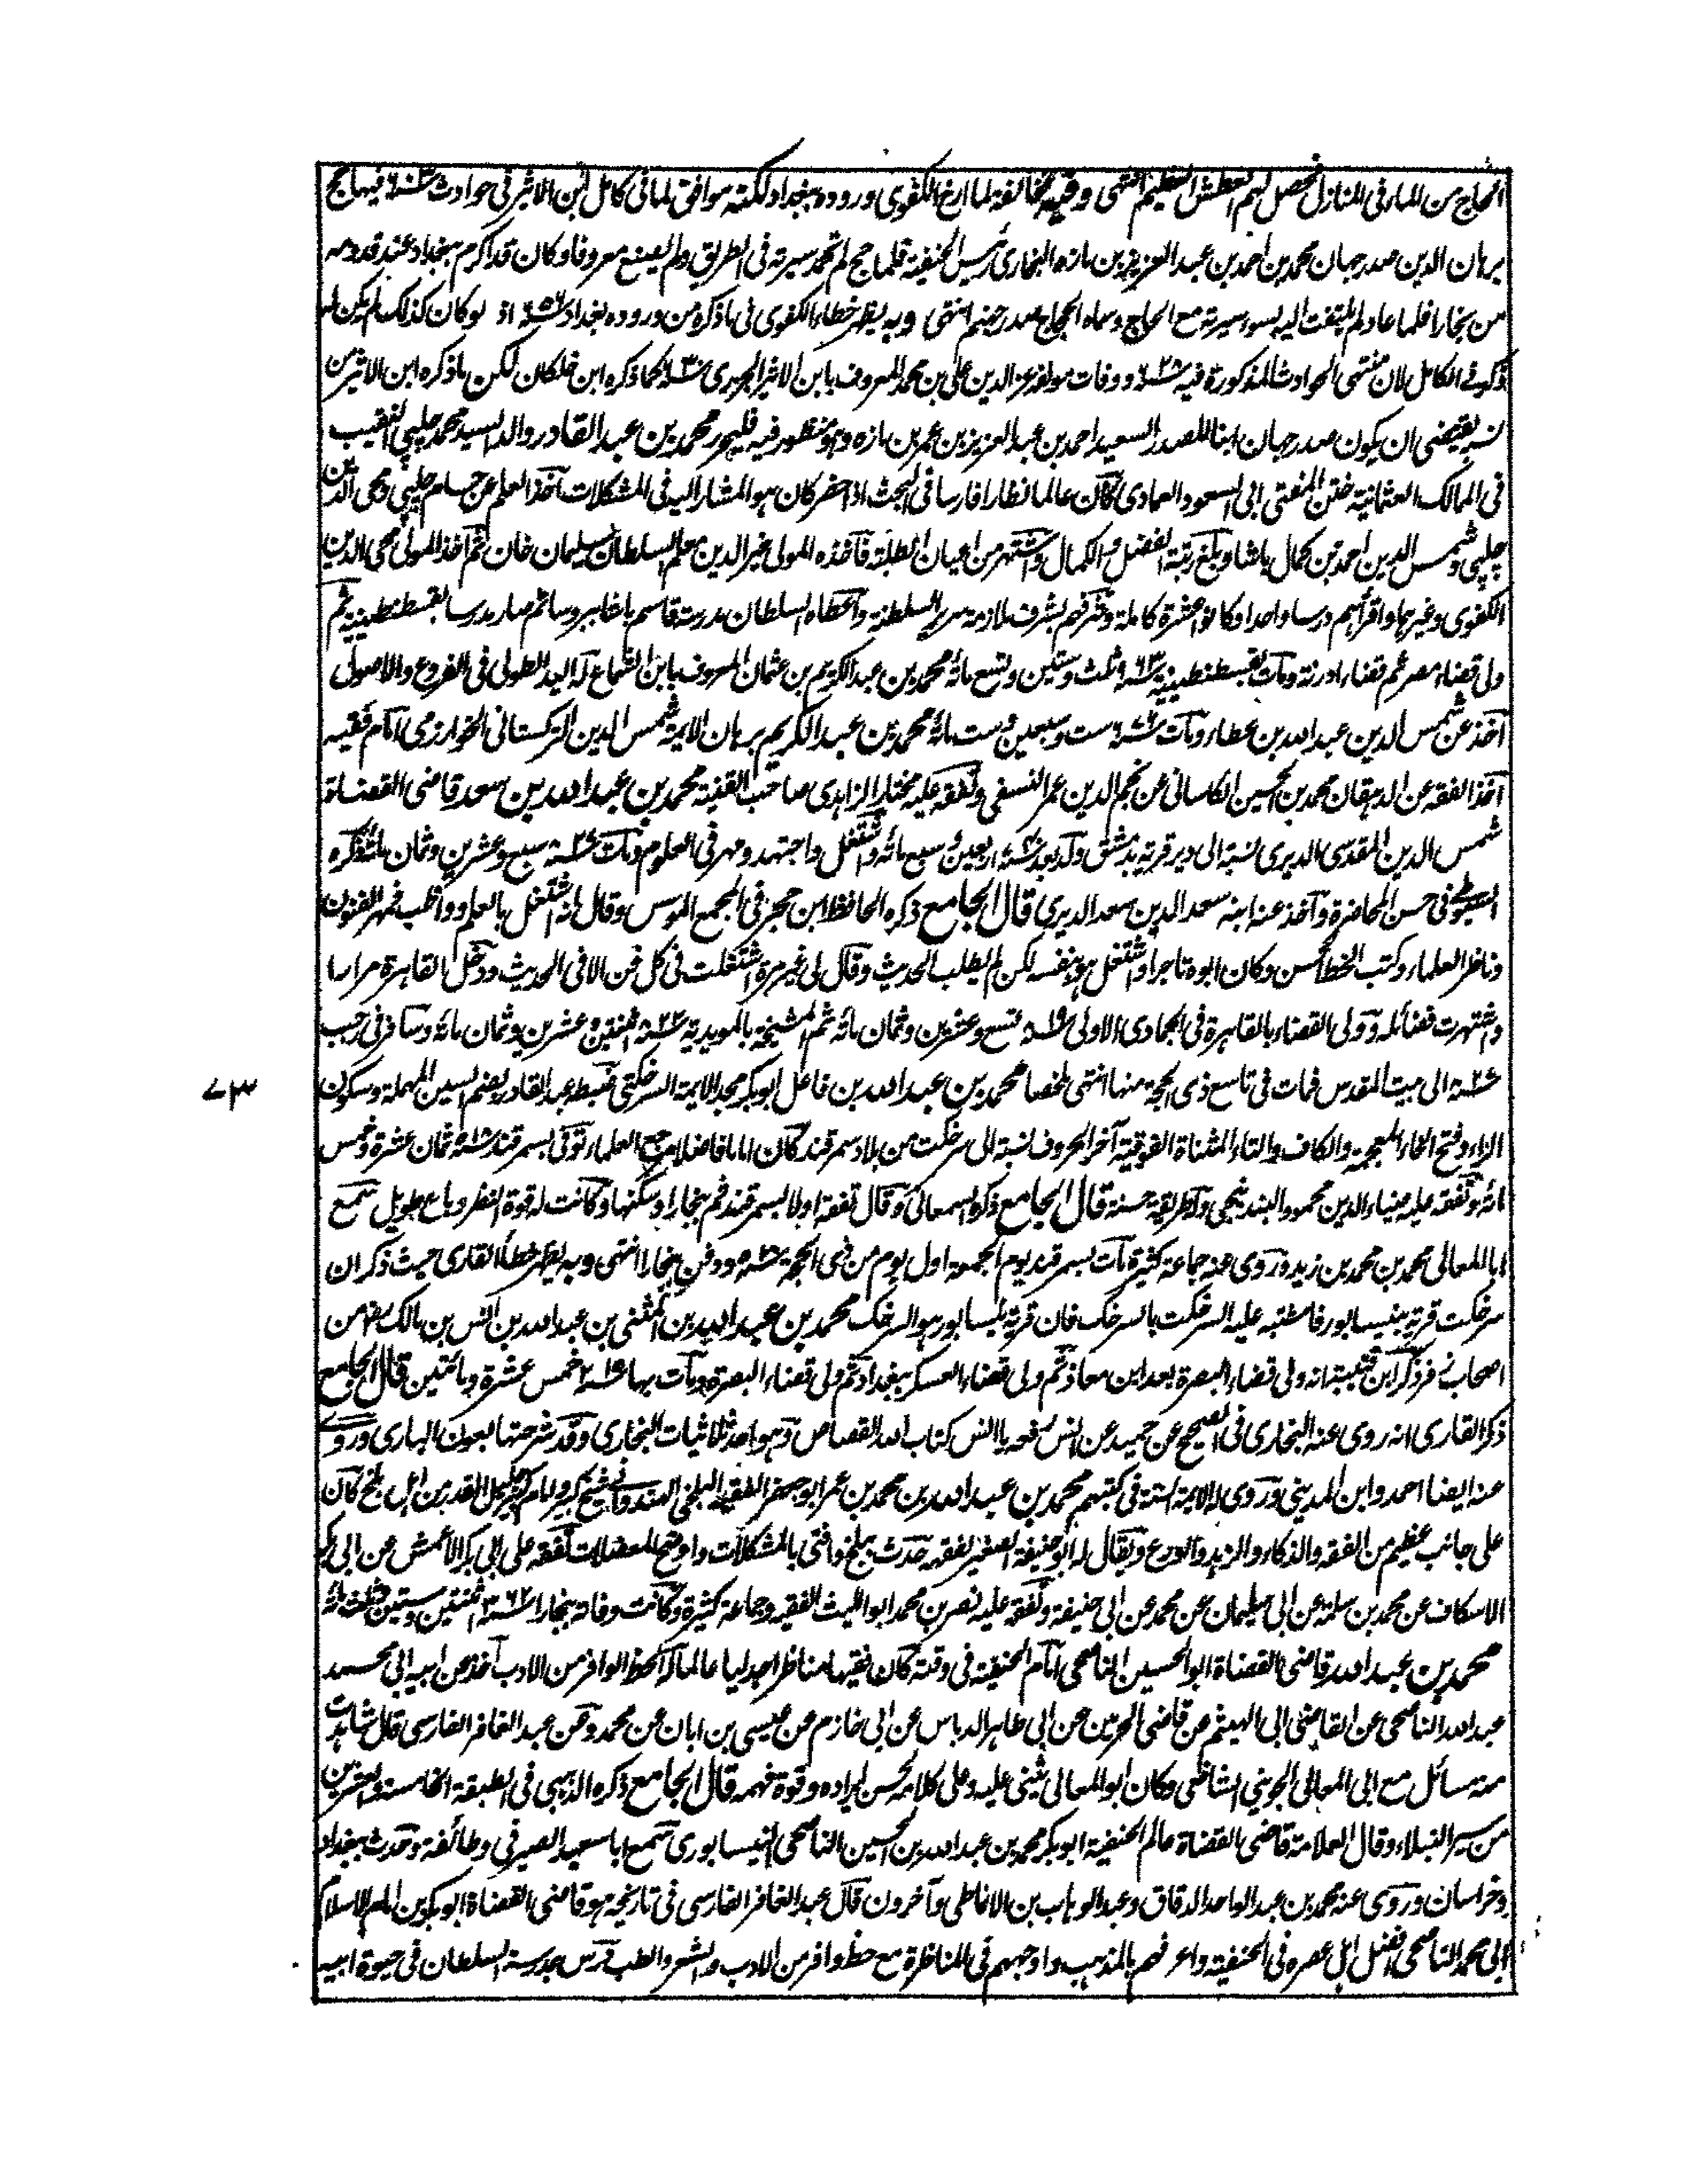 الحجاج من الماء فى المنازل فحصل لهم العطش العظيم انتهى وفيه مخالفة لما ارخ الكفوى وروده ببغداد لكنه موافق لما فى كامل ابن الاثير فى حوادث سنة ٦٠٣ فيها حج
برهان الدين صدر جهان محمد بن احمد بن عبد العزيز بن مازه البخارى رئيس الحنفية فلما حج لم تحمد سيرته فى الطريق ولم يصنع معروفا وكان قد اكرم ببغداد عند قدومه
من بخارا فلما عاد لم يلتفت اليه لسوء سيرته مع الحاج وسماه الحجاج صدر جهنم انتهى وبه يظهر خطاء الكفوى فى ما ذكره من وروده بغداد سنة اذ لو كان كذلك لم يكن له
ذكر فى الكامل لان منتهى الحوادث المذكورة فيه سنة ٦٢٨ ووفات مولفه عز الدين على بن محمد المعروف بابن الاثير الجزرى سنة ٦٣٠ كما ذكره ابن خلكان لكن ما ذكره ابن الاثير من
نسبه يقتضى ان يكون صدر جهان ابنا للصدر السعيد احمد بن عبد العزيز بن عمر بن مازه وهو منظور فيه فليحرر محمد بن عبد القادر والد السيد محمد چلبى النقيب
فى الممالك العثمانية ختن المفتى ابى السعود العمادى كان عالما نظارا فارسا فى البحث اذا حضر كان هو المشار اليه فى المشكلات اخذ العلم عن حسام چلبى ومحى الدين
چلبى وشمس الدين احمد بن كمال باشا وبلغ رتبة الفضل والكمال واشتهر من اعيان الطلبة فاخذه المولى خير الدين معلم السلطان سليمان خان ثم اخذ المولى محى الدين
الكفوى وغيرهما واقرأهم درسا واحدا وكانوا عشرة كاملة وشرفهم بشرف ملازمة سرير السلطنة واعطاه السلطان مدرسة قاسم باشا ببروسا ثم صار مدرسا بقسطنطينية ثم
ولى قضاء مصر ثم قضاء ادرنة ومات بقسطنطينية سنة ٩٦٣ ثلث وستين وتسع مائة محمد بن عبد الكريم بن عثمان المعروف بابن الشماع له اليد الطولى فى الفروع والاصول
اخذ عن شمس الدين عبد الله بن عطاء ومات سنة ٦٧٦ ست وسبعين وست مائة محمد بن عبد الكريم برهان الايمة شمس الدين التركستانى الخوارزمى امام فقيه
اخذ الفقه عن الدهقان محمد بن الحسين الكاسانى عن نجم الدين عمر النسفى وتفقه عليه مختار الزاهدى صاحب القنية محمد بن عبد الله بن سعد قاضى القضاة
شمس الدين المقدسى الديرى نسبة الى دير قرية بدمشق ولد بعد سنة ٧٤٠ اربعين وسبع مائة واشتغل واجتهد ومهر فى العلوم ومات سنة ٨٢٧ سبع وعشرين وثمان مائة ذكره
السيوطى فى حسن المحاضرة واخذ عنه ابنه سعد الدين سعد الديرى قال الجامع ذكره الحافظ ابن حجر فى المجمع الموسس وقال انه اشتغل بالعلم وواظب فمهر الفنون
وناظر العلماء وكتب الخط الحسن وكان ابوه تاجرا واشتغل هو بنفسه لكن لم يطلب الحديث وقال لى غير مرة اشتغلت فى كل فن الا فى الحديث ودخل القاهرة مرارا
واشتهرت فضائله وولى القضاء بالقاهرة فى الجمادى الاولى سنة ٨١٩ تسع وعشرين وثمان مائة ثم المشيخة بالمويدية سنة ٨٢٢ اثنتين وعشرين وثمان مائة وسافر فى رجب
سنة ٨٢٧ الى بيت المقدس فمات فى تاسع ذى الحجة منها انتهى ملخصا محمد بن عبد الله بن فاعل ابو بكر مجد الايمة السرخكتى ضبطه عبد القادر بضم السين المهملة وسكون
الراء وفتح الخاء المعجمة والكاف والتاء المثناة الفوقية آخر الحروف نسبة الى سرخكت من بلاد سمرقند كان اماما فاضلا مرجع العلماء توفى بسمرقند سنة ٥١٨ ثمان عشرة وخمس
مائة وتفقه عليه ضياء الدين محمود البندنيجى وله طريقة حسنة قال الجامع ذكره السمعانى وقال تفقه اولا بسمرقند ثم ببخارا وسكنها وكانت له قوة النظر وباع طويل سمع
ابا المعالى محمد بن محمد بن زيد وروى عنه جماعة كثيرة مات بسمرقند يوم الجمعة اول يوم من ذى الحجة سنة ٥١٨ ودفن ببخارا انتهى وبه يظهر خطأ القارى حيث ذكر ان
سرخكت قرية بنيسابور فاشتبه عليه السرخكت بالسرخك فان قرية نيسابور هو السرخك محمد بن عبد الله بن المثنى بن عبد الله بن انس بن مالك رض من
اصحاب زفر ذكر ابن قتيبة انه ولى قضاء البصرة بعد ابن معاذ ثم ولى قضاء العسكر ببغداد ثم ولى قضاء البصرة ومات بها سنة ٢١٥ خمس عشرة ومائتين قال الجامع
ذكر القارى انه روى عنه البخارى فى الصحيح عن حميد عن انس رفعه يا انس كتاب الله القصاص وهو احد ثلاثيات البخارى وقد شرحتها بعون البارى وروى
عنه ايضا احمد وابن المدينى وروى له الايمة الستة فى كتبهم محمد بن عبد الله بن محمد بن عمر ابو جعفر الفقيه البلخى الهندوانى شيخ كبير وامام جليل القدر من اهل بلخ كان
على جانب عظيم من الفقه والذكاء والزهد والورع ويقال له ابو حنيفة الصغير لفقهه حدث ببلخ وافتى بالمشكلات واوضح المعضلات تفقه على ابى بكر الاعمش عن ابى بكر
الاسكاف عن محمد بن سلمة عن ابى سليمان عن محمد عن ابى حنيفة وتفقه عليه نصر بن محمد ابو الليث الفقيه وجماعة كثيرة وكانت وفاته ببخارا سنة ٣٦٢ اثنتين وستين وثلث مائة
محمد بن عبد الله قاضى القضاة ابو الحسين الناصحى امام الحنفية فى وقته كان فقيها مناظرا جدليا عالما له الحظ الوافر من الادب اخذ عن ابيه ابى محمد
عبد الله الناصحى عن القاضى ابى الهيثم عن قاضى الحرمين عن ابى طاهر الدباس عن ابى خازم عن عيسى بن ابان عن محمد وعن عبد الغافر الفارسى قال شاهدت
منه مسائل مع ابى المعالى الجوينى الشافعى وكان ابو المعالى يثنى عليه وعلى كلامه لحسن ايراده وقوة فهمه قال الجامع ذكره الذهبى فى الطبقة الخامسة والعشرين
من سير النبلاء وقال العلامة قاضى القضاة عالم الحنفية ابو بكر محمد بن عبد الله بن الحسين الناصحى النيسابورى سمع ابا سعيد الصيرفى وطائفة وحدث ببغداد
وخراسان وروى عنه محمد بن عبد الواحد الدقاق وعبد الوهاب بن الانماطى وآخرون قال عبد الغافر الفارسى فى تاريخه هو قاضى القضاة ابو بكر بن امام الاسلام
ابى محمد الناصحى افضل اهل عصره فى الحنفية واعرفهم بالمذهب واوجههم فى المناظرة مع حظ وافر من الادب والشعر والطب درس بمدرسة السلطان فى حيوة ابيه
٧٣